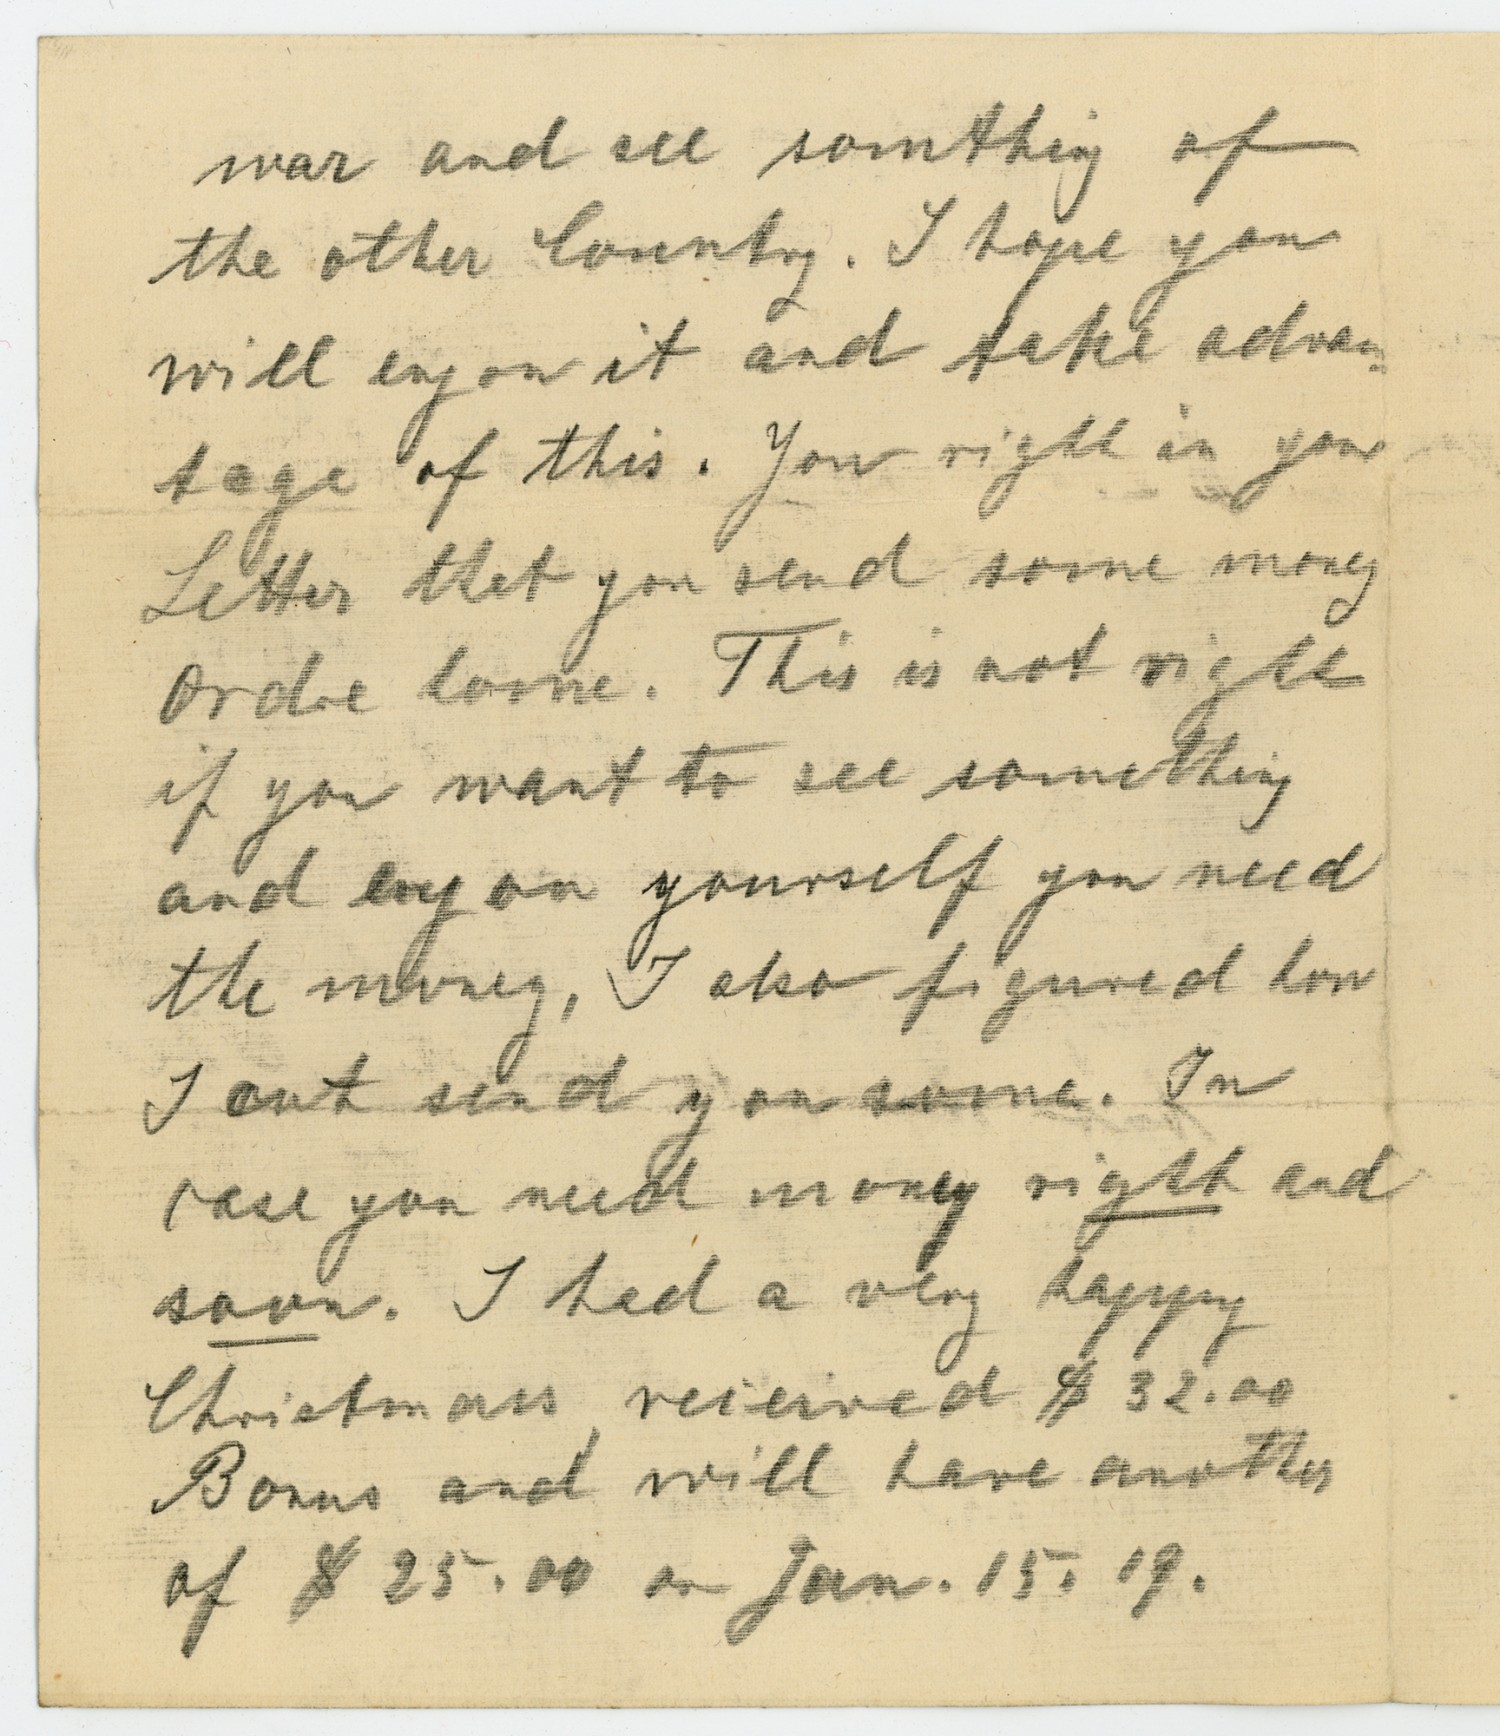 war and see somthing of
the other Country. I hope you
will enyou it and take advan=
tage of this. You rigth in your
Letter thet you send some money
Ordre home. This is not rigth
if you want to see something
and enyou yourself you need
the money, I also figured how
I out send you some. In
case you need money rigth and
soon. I had a very happy
Christmass, reicived $ 32.00
Bonus and will have another
of $ 25.00 on Jan. 15. 19.